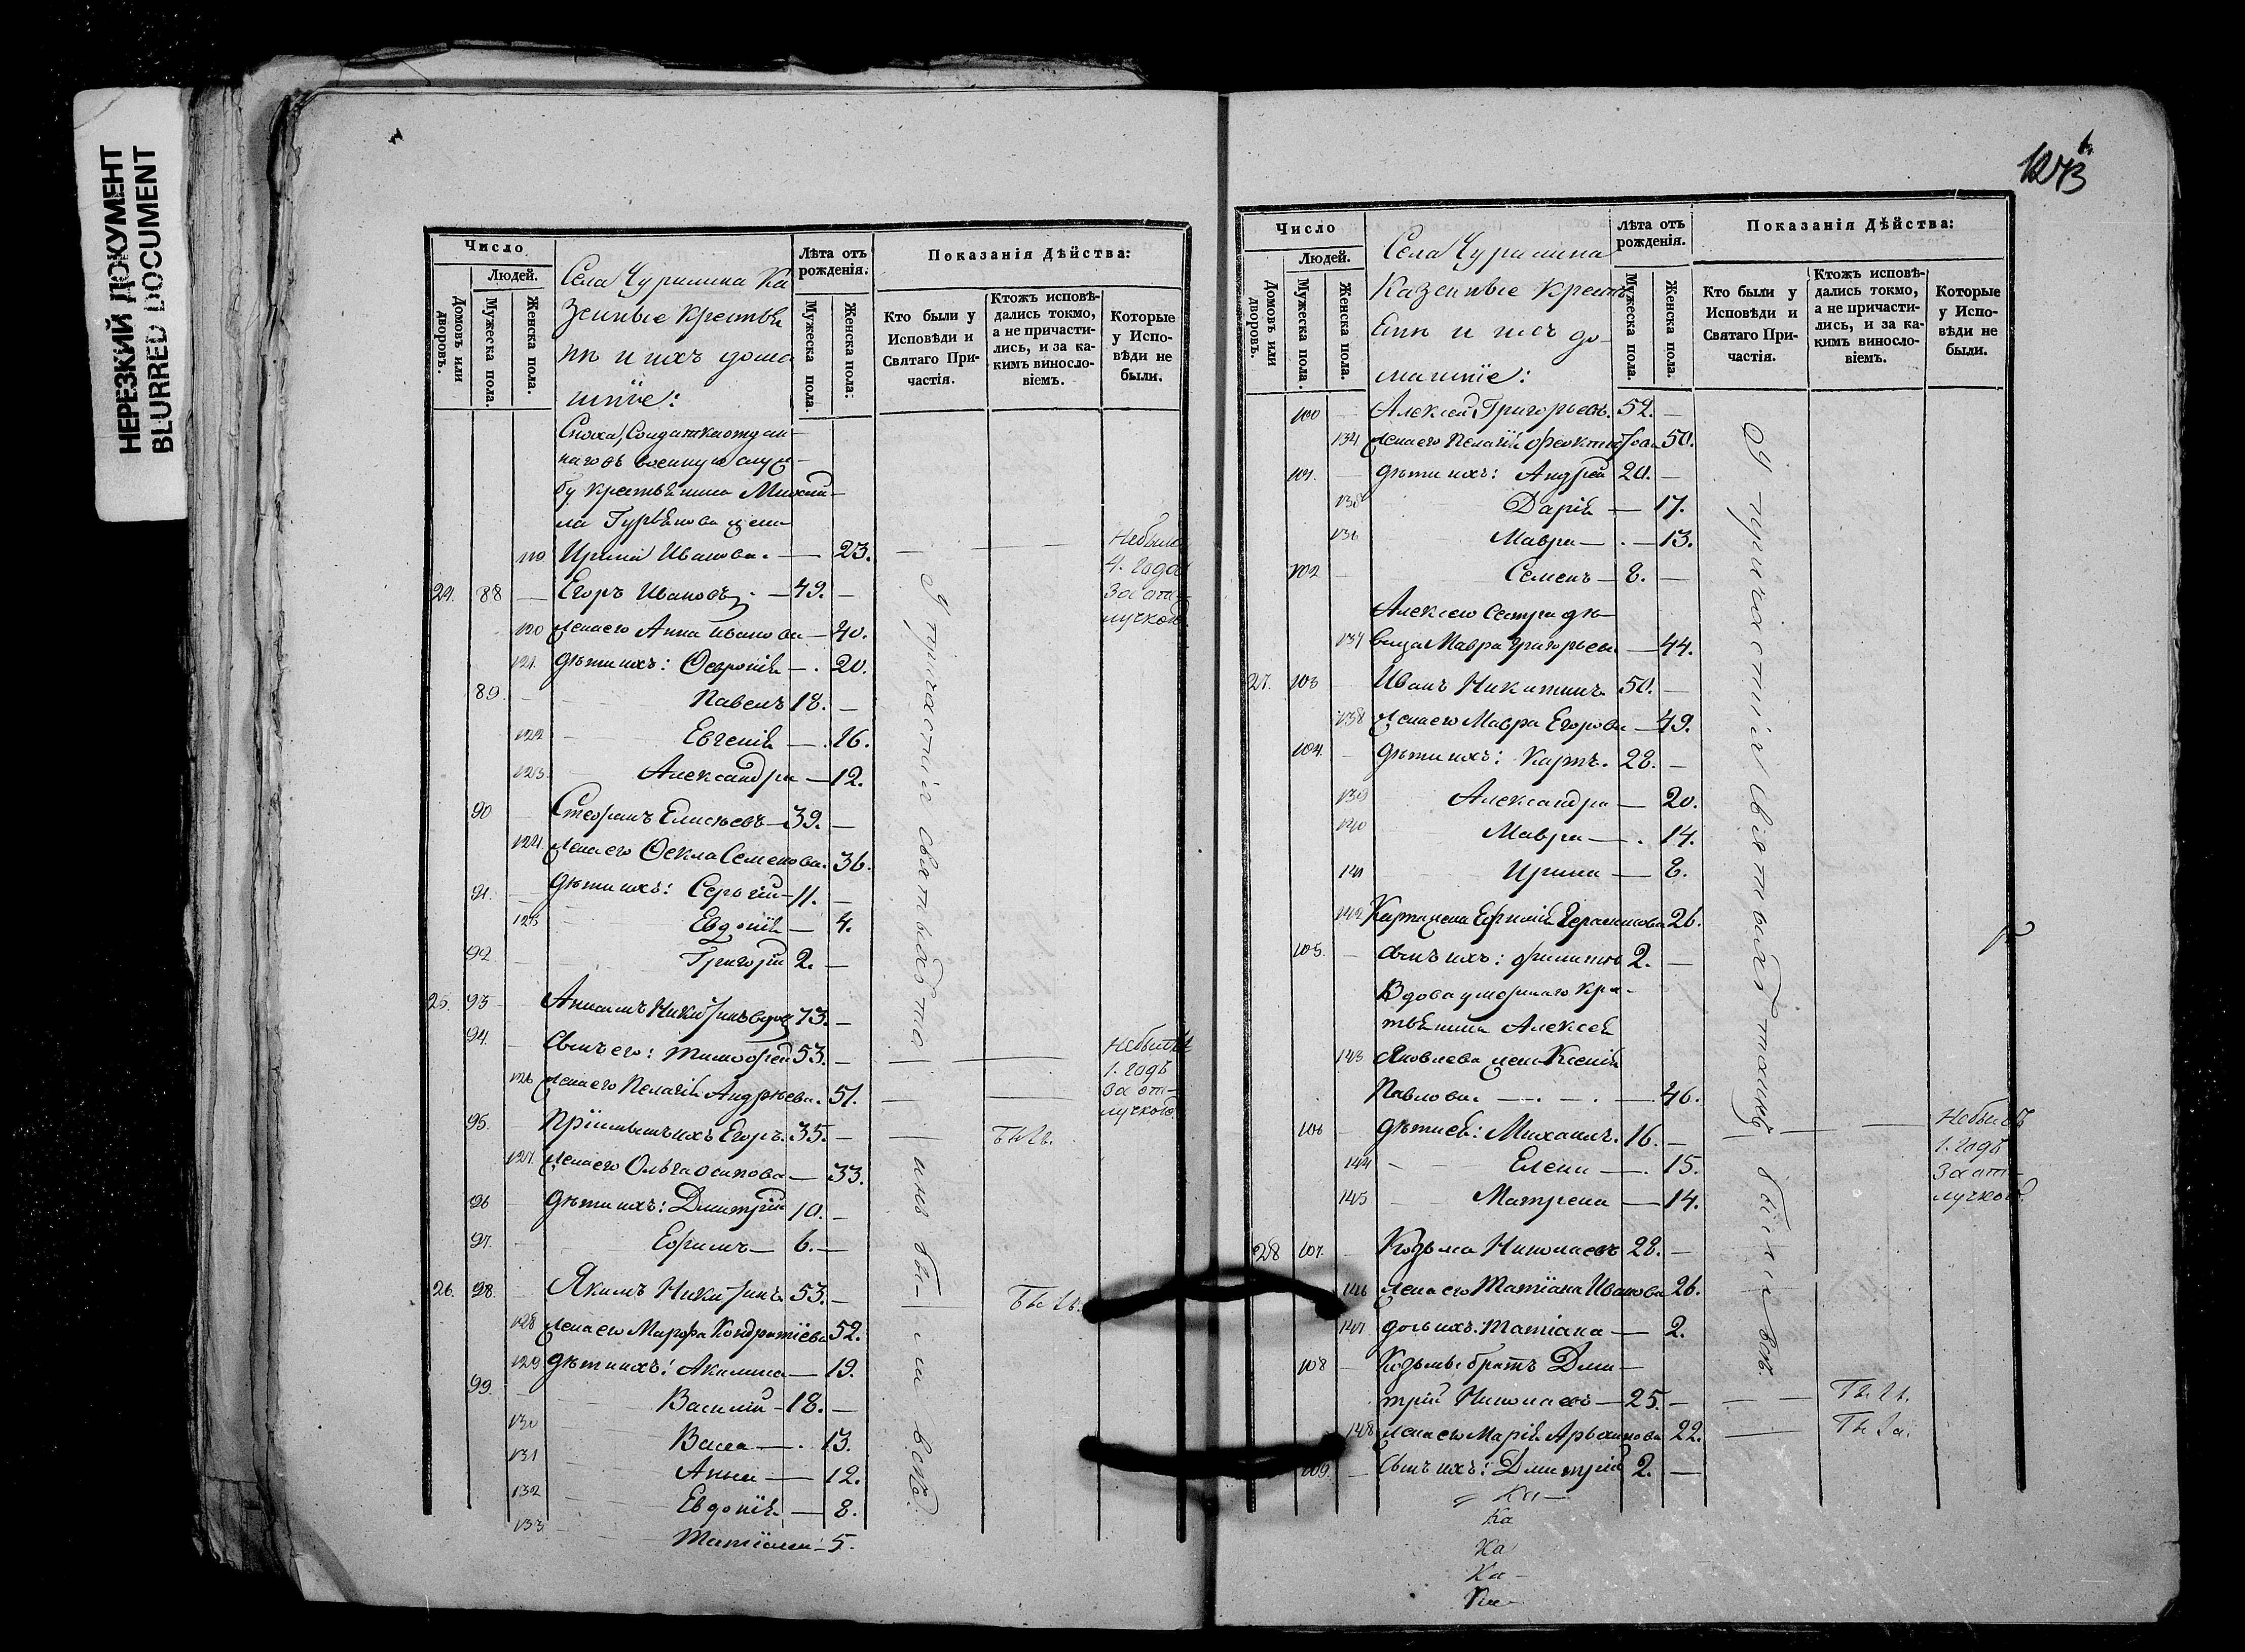 НЕРЕЗКИЙ ДОКУМЕНТ
BLURRED DOCUMENT
Число
Людей.
Домовъ или дворовъ.
Мужеска пола.
Женска пола.
Села Чурилина Ка
зенные Крестья
не и ихъ дома
шніе:
Лѣта отъ рожденія.
Мужеска пола.
Женска пола.
Показанія Дѣйства:
Кто были у Исповѣди и Святаго Причастія.
Ктожъ исповѣдались токмо, а не причастились, и за какимъ винословіемъ.
Которые у Исповѣди не были.
Сноха, Солдатка отдан-
наго въ военную служ-
бу крестьянина Михаи-
ла Гурьянова жена
119 Ирина Иванова. — 23. — Небыла
4. года
за от-
лучкою.
24. 88 — Егоръ Ивановъ. — 49. —
120 Жена его Анна Иванова — 40.
121. дѣти ихъ: Февронія — 20.
89. Павелъ 18. —
122 Евгенія — 16.
123. Александра — 12.
90 Стефанъ Елисеевъ — 39. —
124. Жена его Фекла Семенова. 36.
91. дѣти ихъ: Сергѣй — 11. —
125 Евдокія — 4.
92. Григорій 2. —
25. 93 Никитинъ 73. —
94. Сынъ его: Тимофей 53. — Небыли
1. годъ
за от-
лучкою.
126 Жена его Пелагія Андреева. 51.
95. Пріимышъ ихъ Егоръ. 35. —
127. Жена его Ольга Осипова — 33.
96 дѣти ихъ: Дмитрій 10. —
97. Ефимъ — 6. —
26. 98. Якимъ Никитинъ 53. —
128 Жена его Марфа Кондратіева 52.
129 дѣти ихъ: Акилина — 19.
99. Василій — 18. —
130 Васса — 13.
131 Анна — 12.
132 Евдокія — 8.
133 Матіана — 5.
У причастія святыхъ таинъ были всѣ.
1273
Число
Людей.
Домовъ или дворовъ.
Мужеска пола.
Женска пола.
Села Чурилина
Казенные Кресть
яне и ихъ до-
машніе:
Лѣта отъ рожденія.
Мужеска пола.
Женска пола.
Показанія Дѣйства:
Кто были у Исповѣди и Святаго Причастія.
Ктожъ исповѣдались токмо, а не причастились, и за какимъ винословіемъ.
Которые у Исповѣди не были.
100 — Алексей Григорьевъ. 52. —
134 Жена его Пелагія Феоктистова 50.
101. дѣти ихъ: Андрей 20. —
135 Дарія — 17.
136 Мавра — 13.
102 Семенъ — 8. —
Алексея Сестра дѣ-
137 вица Мавра Григорьева — 44.
27. 103 Иванъ Никитинъ 50. —
138 Жена его Мавра Егорова — 49.
104. дѣти ихъ: Карпъ. 28. —
139 Александра — 20.
140 Мавра — 14.
141 Ирина — 8.
142 Карпа жена Ефимія Герасимова 26.
105. Сынъ ихъ: Филиппъ 2. —
Вдова умершаго Кре-
стьянина Алексея
143 Яковлева жена Ксенія
Павлова. — 46.
106 дѣти ея: Михаилъ. 16. — Небылъ
1. годъ
за от-
лучкою.
144 Елена — 15.
145 Матрена — 14.
28 107. Козьма Николаевъ 28. —
146 Жена его Матіана Иванова 26.
147 дочь ихъ: Матіана — 2.
108 Козьмы братъ Дми-
трій Николаевъ — 25. —
148 Жена его Марія 22.
109. Сынъ ихъ: Дмитрій 2. —
У причастія святыхъ таинъ были всѣ.
Ка
Ка
Ка
Ка
Ка